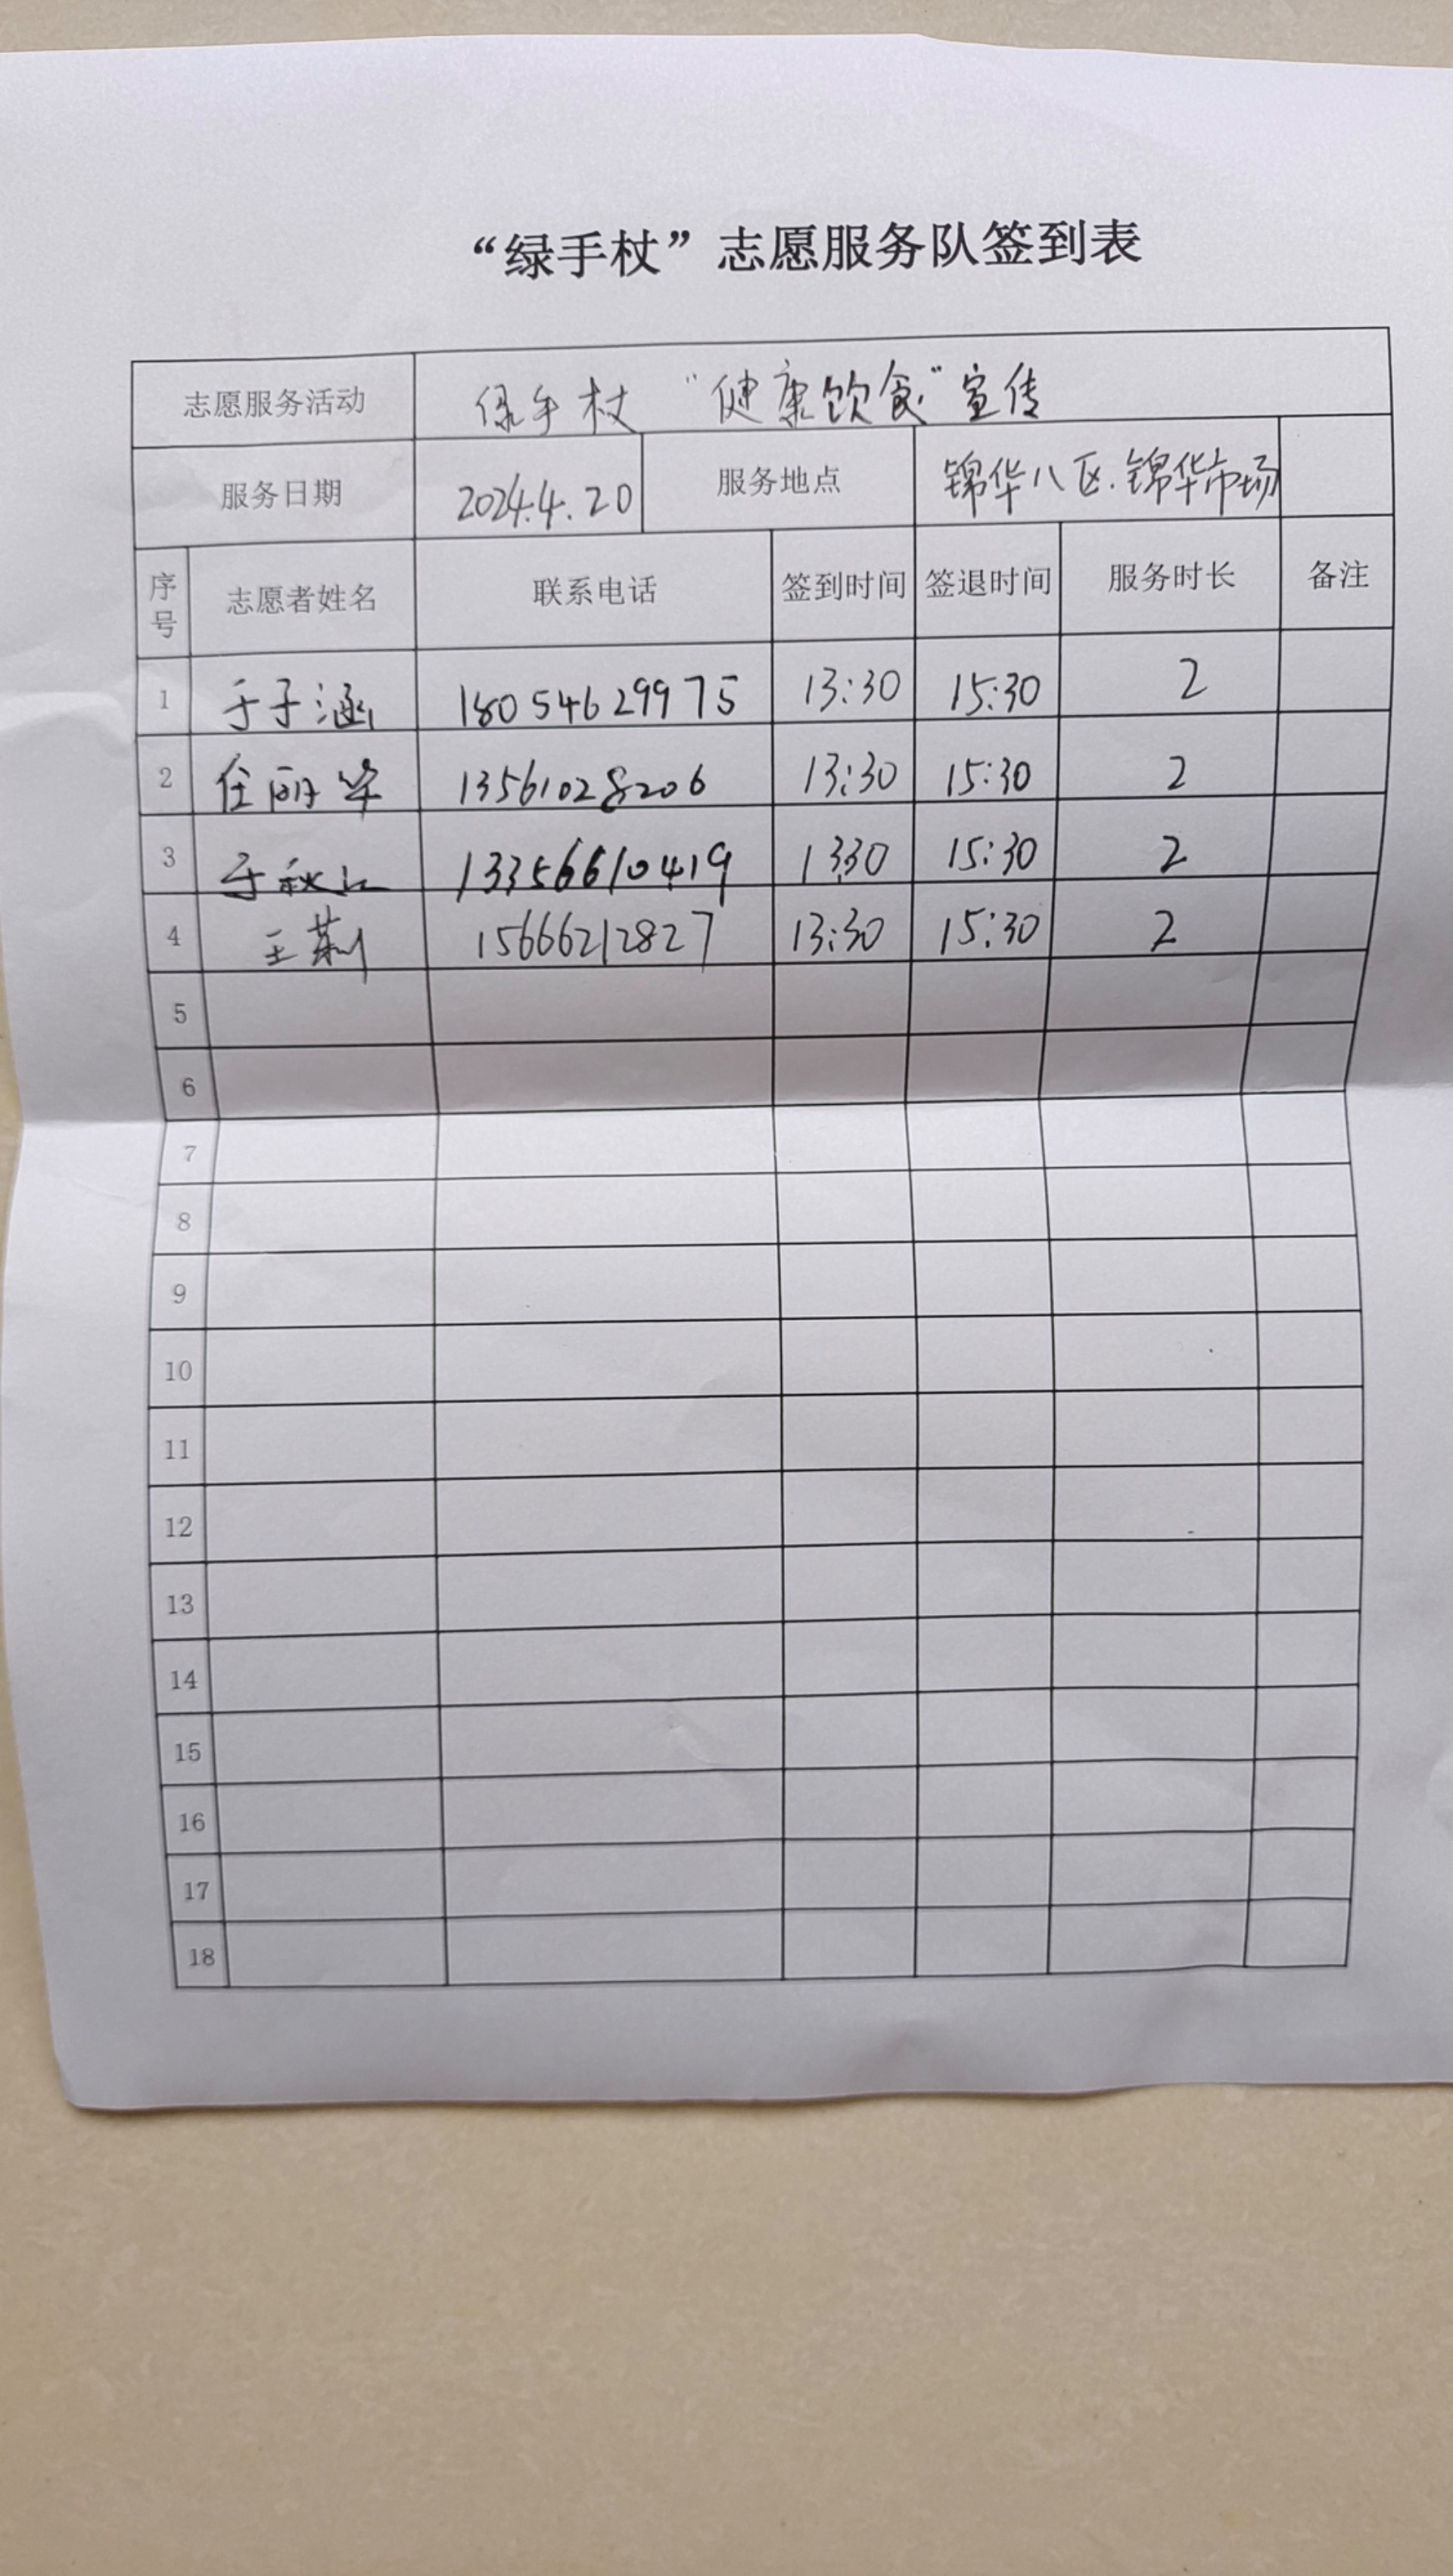 “绿手杖”志愿服务队签到表
志愿服务活动 绿手杖 “健康饮食”宣传
服务日期 2024.4.20 服务地点 锦华八区.锦华市场
序号 志愿者姓名 联系电话 签到时间 签退时间 服务时长 备注
1 于子涵 18054629975 13:30 15:30 2
2 任丽华 13561028206 13:30 15:30 2
3 于秋江 13356610419 13:30 15:30 2
4 王莉 15666212827 13:30 15:30 2
5
6
7
8
9
10
11
12
13
14
15
16
17
18